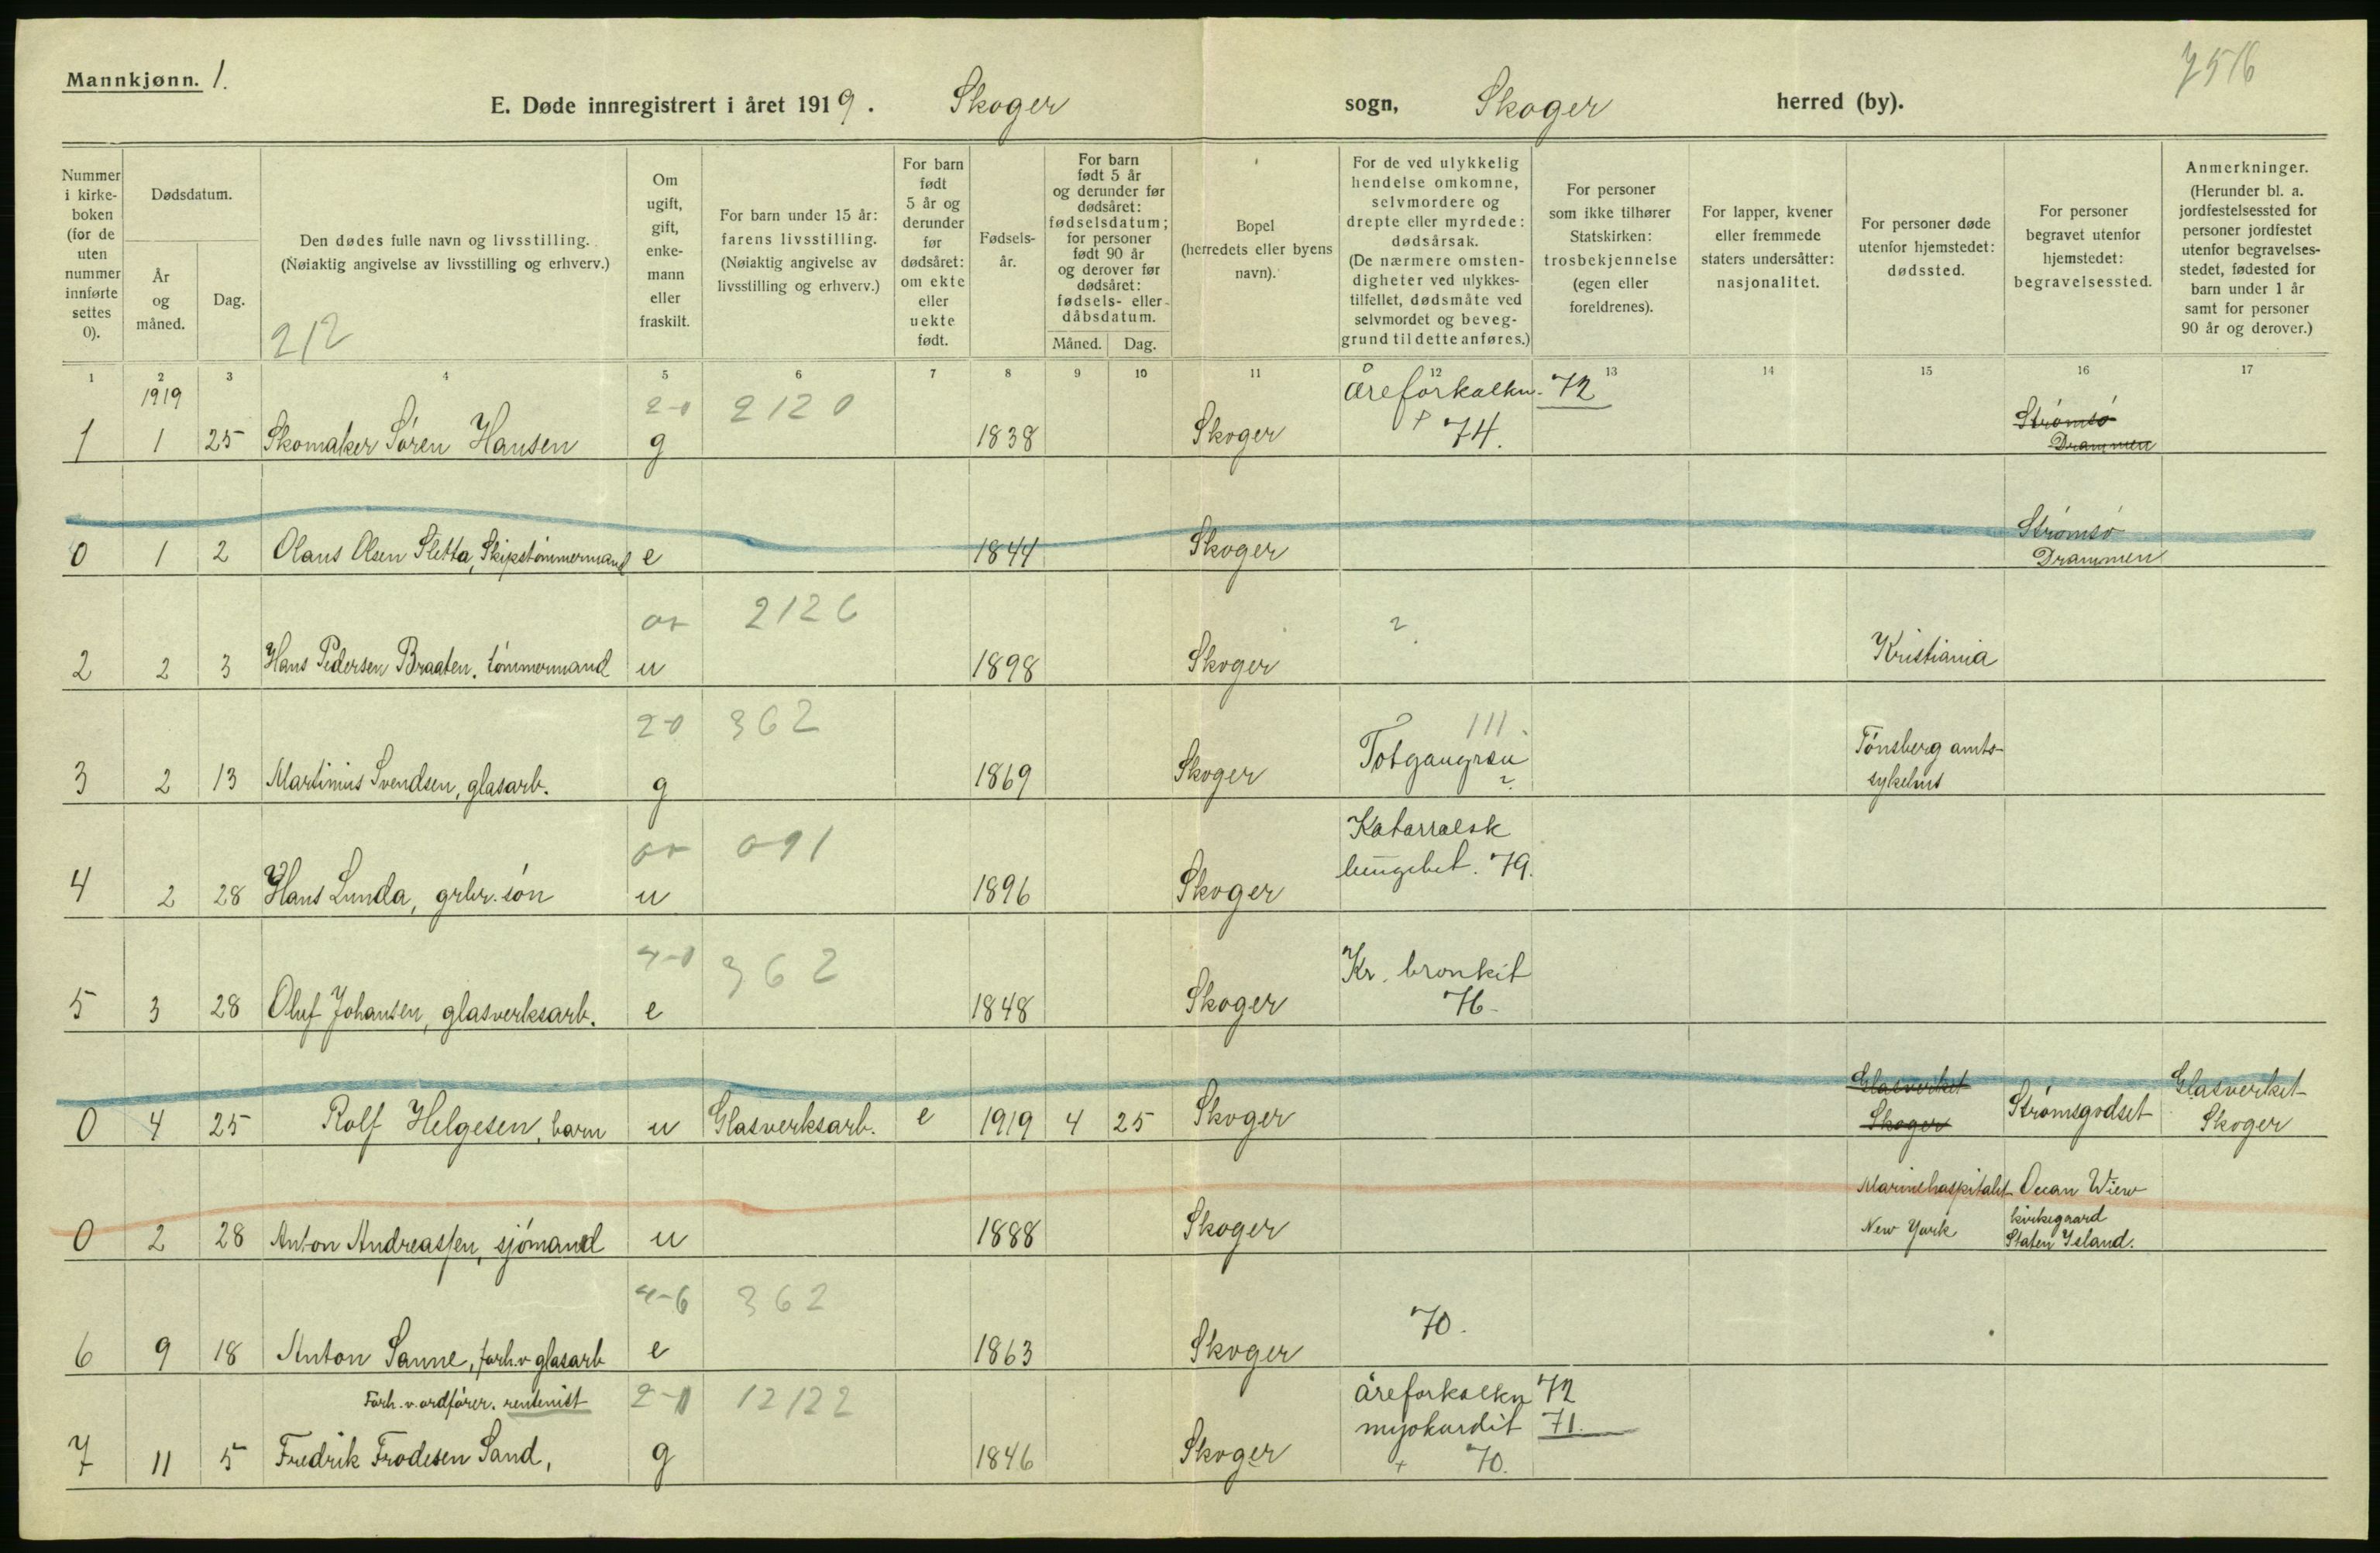 Mannkjønn. 1.
7516
E. Døde innregistrert i året 1919. Skoger sogn, Skoger herred (by).
Nummer i kirke- boken (for de uten nummer innførte settes 0).
Dødsdatum.
År og måned.
Dag.
Den dødes fulle navn og livsstilling.
(Nøiaktig angivelse av livsstilling og erhverv.)
212
Om ugift, gift, enke- mann eller fraskilt.
For barn under 15 år: farens livsstilling. (Nøiaktig angivelse av livsstilling og erhverv.)
For barn født 5 år og derunder før dødsåret: om ekte eller uekte født.
Fødsels- år.
For barn født 5 år og derunder før dødsåret: fødselsdatum; for personer født 90 år og derover før dødsåret: fødsels- eller dåbsdatum.
Måned. Dag.
Bopel (herredets eller byens navn).
For de ved ulykkelig hendelse omkomne, selvmordere og drepte eller myrdede: dødsårsak. (De nærmere omsten- digheter ved ulykkes- tilfellet, dødsmåte ved selvmordet og beveg- grund til dette anføres.)
For personer som ikke tilhører Statskirken: trosbekjennelse (egen eller foreldrenes).
For lapper, kvener eller fremmede staters undersåtter: nasjonalitet.
For personer døde utenfor hjemstedet: dødssted.
For personer begravet utenfor hjemstedet: begravelsessted.
Anmerkninger. (Herunder bl. a. jordfestelsessted for personer jordfestet utenfor begravelses- stedet, fødested for barn under 1 år samt for personer 90 år og derover.)
1 2 3 4 5 6 7 8 9 10 11 12 13 14 15 16 17
1919 2-0 2120 Åreforkalkn. 72
1 1 25 Skomaker Sören Hansen g 1838 Skoger + 74. Strømsö Drammen
0 1 2 Olaus Olsen Sletta, Skipstömmermand e 1844 Skoger Strømsö Drammen
2126 ?
2 2 3 Hans Pedersen Braaten, tömmermand u 1898 Skoger Kristiania
2-0 362 111.
3 2 13 Martinius Svendsen, glasarb. g 1869 Skoger Totgangræn ? Tönsberg amts- sykehus
091 Katarralsk
4 2 28 Hans Lunda, grbr. sön u 1896 Skoger lungebet. 79.
4-0 362 Kr. bronkit
5 3 28 Oluf Johansen, glasverksarb. e 1848 Skoger 76-
0 4 25 Rolf Helgesen, barn u Glasverksarb. e 1919 4 25 Skoger Glasverket Skoger Strömsgodset Glasverket Skoger
0 2 28 Anton Andreassen, sjömand u 1888 Skoger Marinehospitalet New York Ocean Wiew kirkegaard Staten Island.
4-6 362
6 9 18 Anton Sanne, forh.v. glasarb e 1863 Skoger 70.
Forh. v. ordförer. rentenist 2-0 12122 åreforkalkn 72
myokardit 71.
7 11 5 Fredrik Frodesen Sand, g 1846 Skoger + 70.